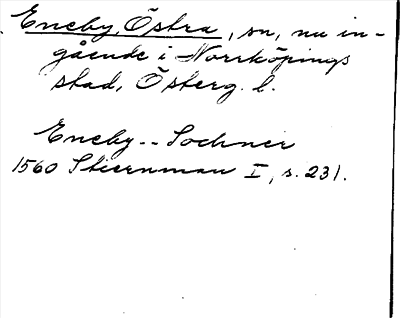 Eneby, Östra, sn, nu in-
gående i Norrköpings
stad, Österg. l.
Eneby -- Sochner
1560 Stiernman I, s. 231.